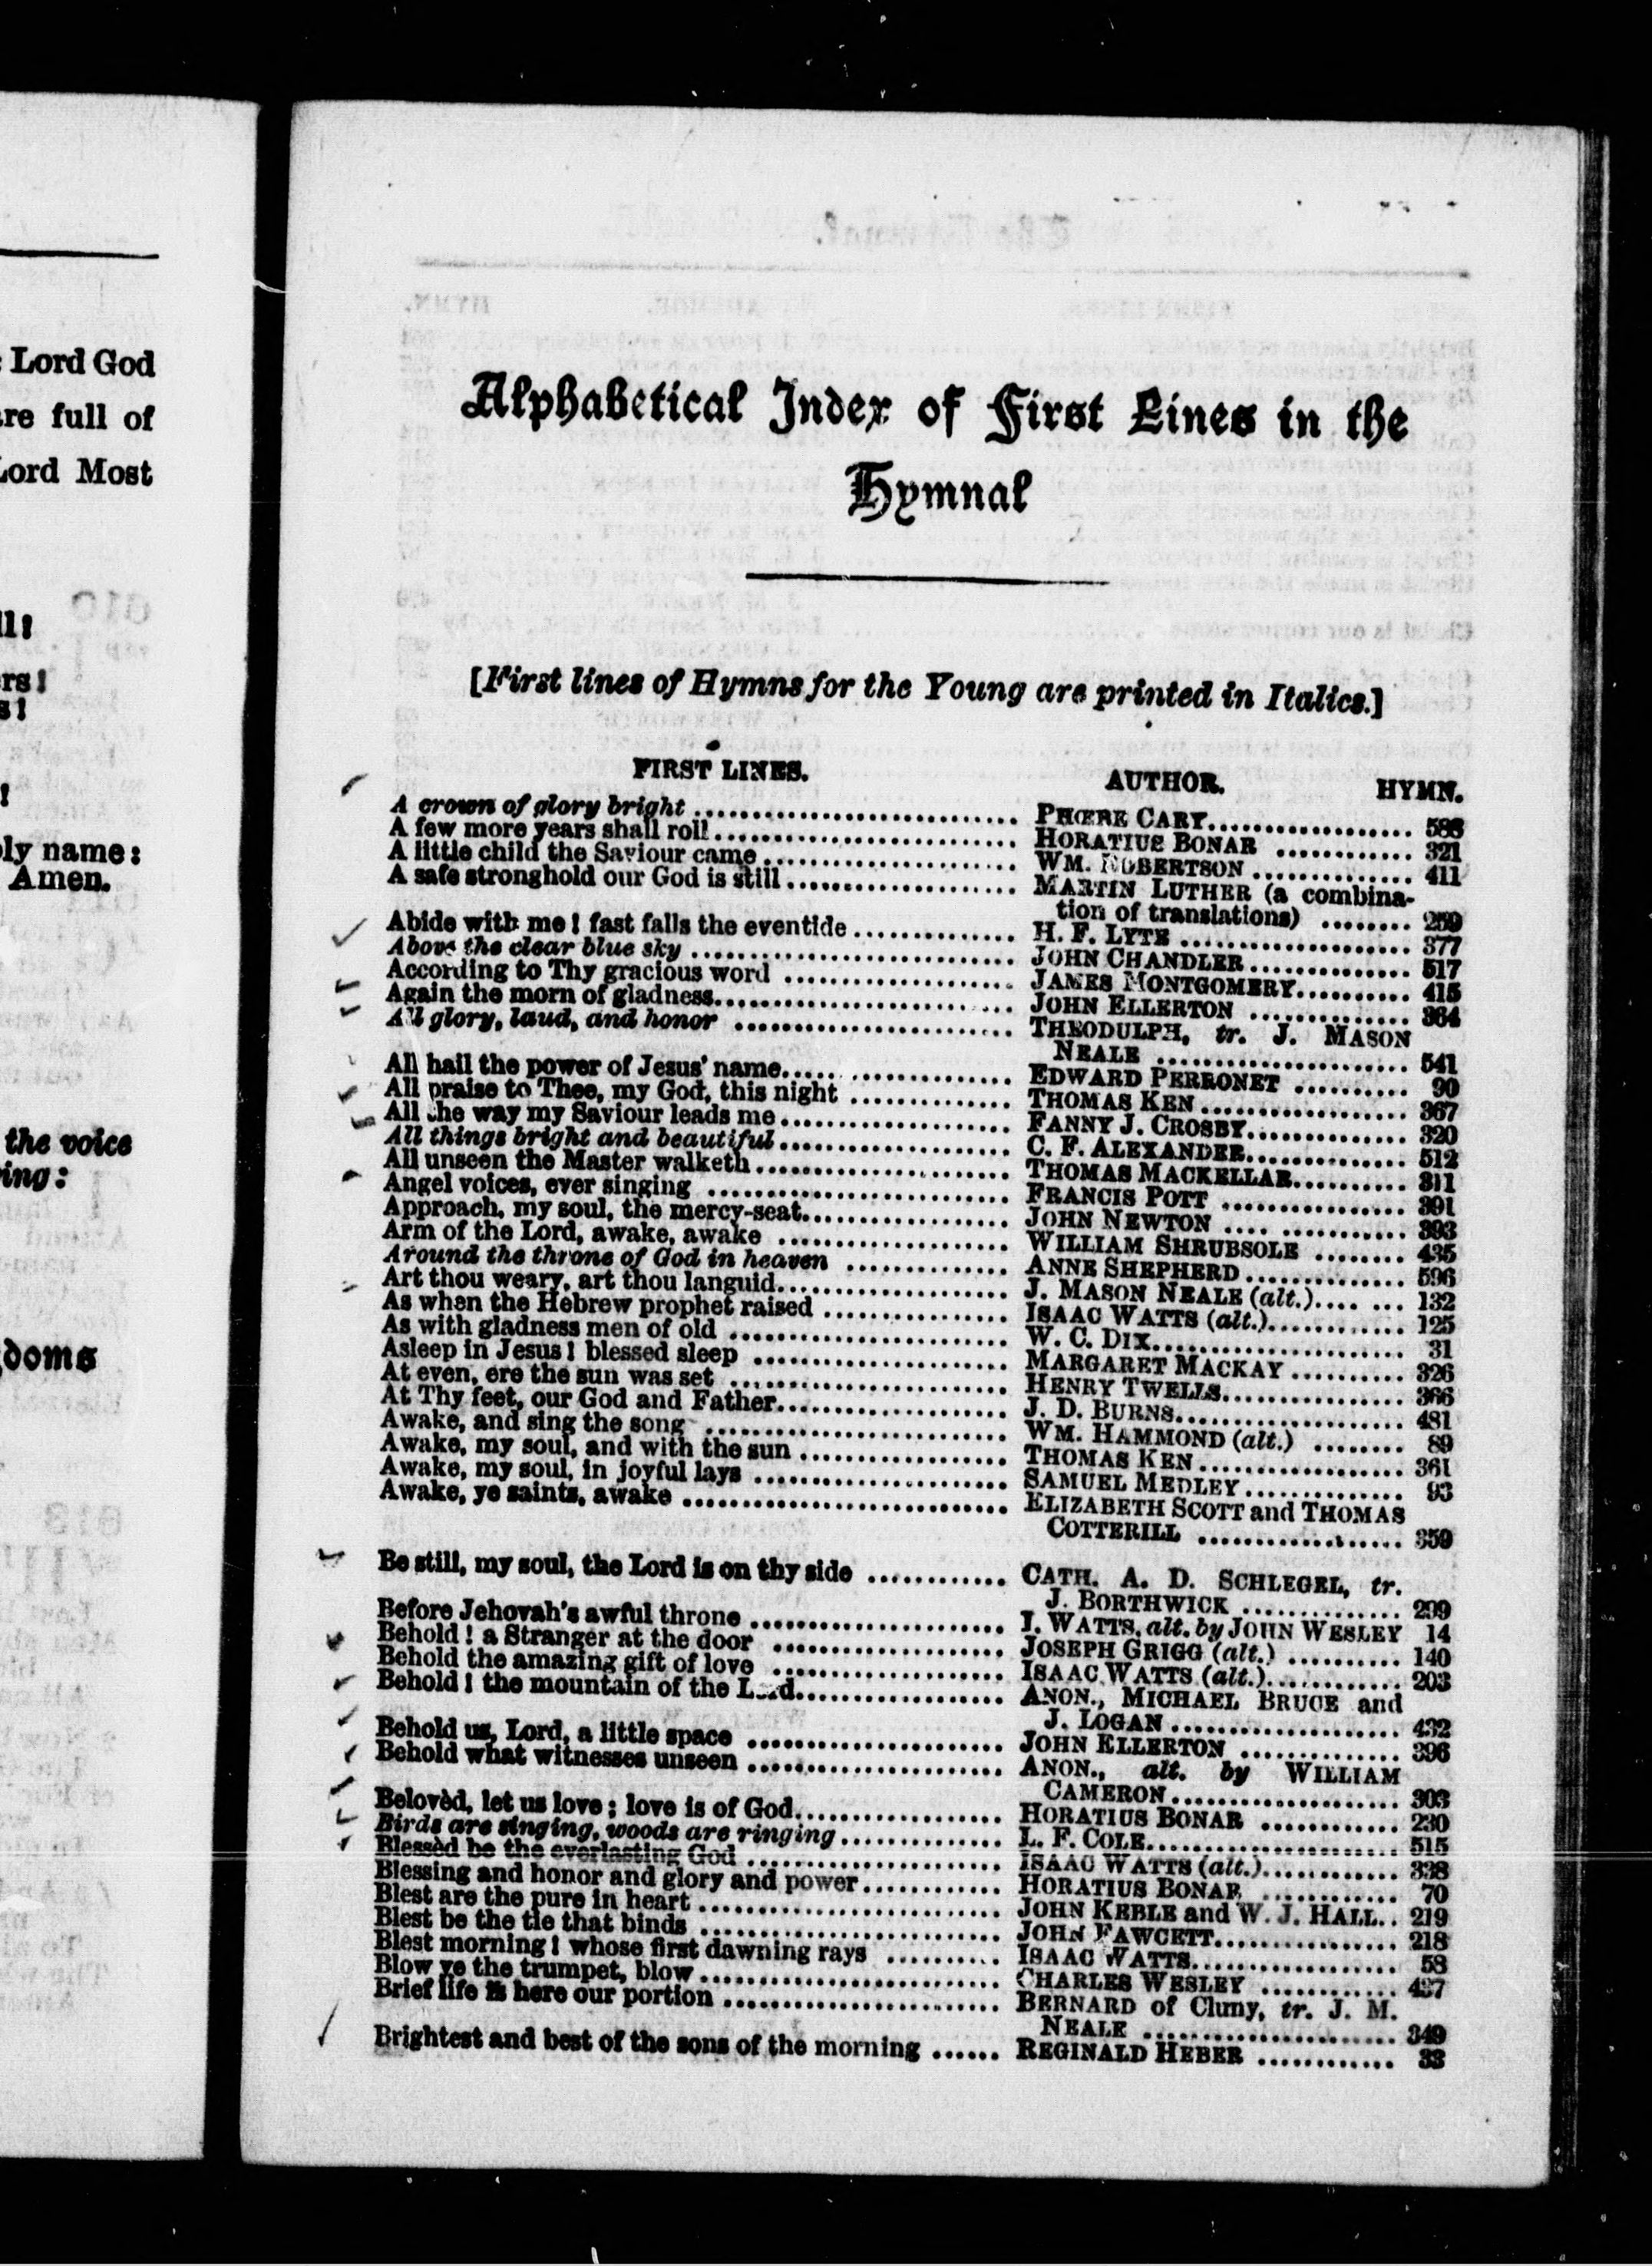 Lord God
re full of
Lord Most
ly name:
Amen.
the voice
ing:
doms
Alphabetical Index of First Lines in the
Hymnal
[First lines of Hymns for the Young are printed in Italics.]
FIRST LINES. AUTHOR. HYMN.
A crown of glory bright PHŒBE CARY 588
A few more years shall roll HORATIUS BONAR 321
A little child the Saviour came WM. ROBERTSON 411
A safe stronghold our God is still MARTIN LUTHER (a combina-
tion of translations) 259
Abide with me! fast falls the eventide H. F. LYTE 377
Above the clear blue sky JOHN CHANDLER 517
According to Thy gracious word JAMES MONTGOMERY 415
Again the morn of gladness JOHN ELLERTON 364
All glory, laud, and honor THEODULPH, tr. J. MASON
NEALE 541
All hail the power of Jesus' name EDWARD PERRONET 90
All praise to Thee, my God, this night THOMAS KEN 367
All the way my Saviour leads me FANNY J. CROSBY 320
All things bright and beautiful C. F. ALEXANDER 512
All unseen the Master walketh THOMAS MACKELLAR 311
Angel voices, ever singing FRANCIS POTT 391
Approach, my soul, the mercy-seat JOHN NEWTON 393
Arm of the Lord, awake, awake WILLIAM SHRUBSOLE 435
Around the throne of God in heaven ANNE SHEPHERD 596
Art thou weary, art thou languid J. MASON NEALE (alt.) 132
As when the Hebrew prophet raised ISAAC WATTS (alt.) 125
As with gladness men of old W. C. DIX 31
Asleep in Jesus! blessed sleep MARGARET MACKAY 326
At even, ere the sun was set HENRY TWELLS 366
At Thy feet, our God and Father J. D. BURNS 481
Awake, and sing the song WM. HAMMOND (alt.) 89
Awake, my soul, and with the sun THOMAS KEN 361
Awake, my soul, in joyful lays SAMUEL MEDLEY 93
Awake, ye saints, awake ELIZABETH SCOTT and THOMAS
COTTERILL 359
Be still, my soul, the Lord is on thy side CATH. A. D. SCHLEGEL, tr.
J. BORTHWICK 299
Before Jehovah's awful throne I. WATTS, alt. by JOHN WESLEY 14
Behold! a Stranger at the door JOSEPH GRIGG (alt.) 140
Behold the amazing gift of love ISAAC WATTS (alt.) 203
Behold! the mountain of the Lord ANON., MICHAEL BRUCE and
J. LOGAN 432
Behold us, Lord, a little space JOHN ELLERTON 396
Behold what witnesses unseen ANON., alt. by WILLIAM
CAMERON 303
Belovèd, let us love; love is of God HORATIUS BONAR 230
Birds are singing, woods are ringing L. F. COLE 515
Blessèd be the everlasting God ISAAC WATTS (alt.) 338
Blessing and honor and glory and power HORATIUS BONAR 70
Blest are the pure in heart JOHN KEBLE and W. J. HALL 219
Blest be the tie that binds JOHN FAWCETT 218
Blest morning! whose first dawning rays ISAAC WATTS 58
Blow ye the trumpet, blow CHARLES WESLEY 437
Brief life is here our portion BERNARD of Cluny, tr. J. M.
NEALE 349
Brightest and best of the sons of the morning REGINALD HEBER 33